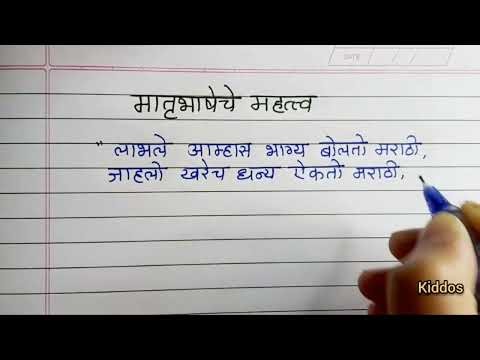 मातृभाषेचे महत्त्व
" लाभले आम्हास भाग्य बोलतो मराठी,
जाहलो खरेच धन्य ऐकतो मराठी,
Kiddos